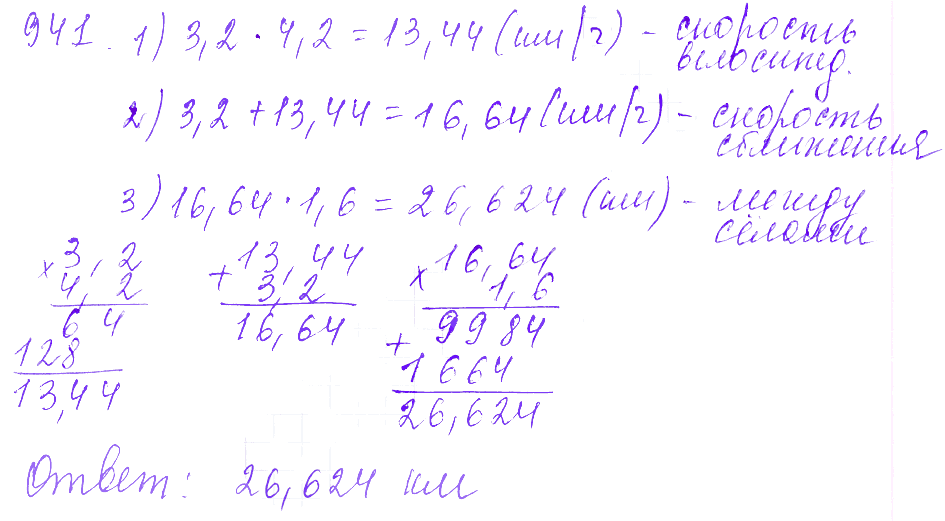 941. 1) 3,2 · 4,2 = 13,44 (км/ч) - скорость
велосипед.
2) 3,2 + 13,44 = 16,64 (км/ч) - скорость
сближения
3) 16,64 · 1,6 = 26,624 (км) - между
сёлами
× 3,2 + 13,44 × 16,64
4,2 3,2 1,6
64 16,64 9984
128 + 1664
13,44 26,624
Ответ: 26,624 км